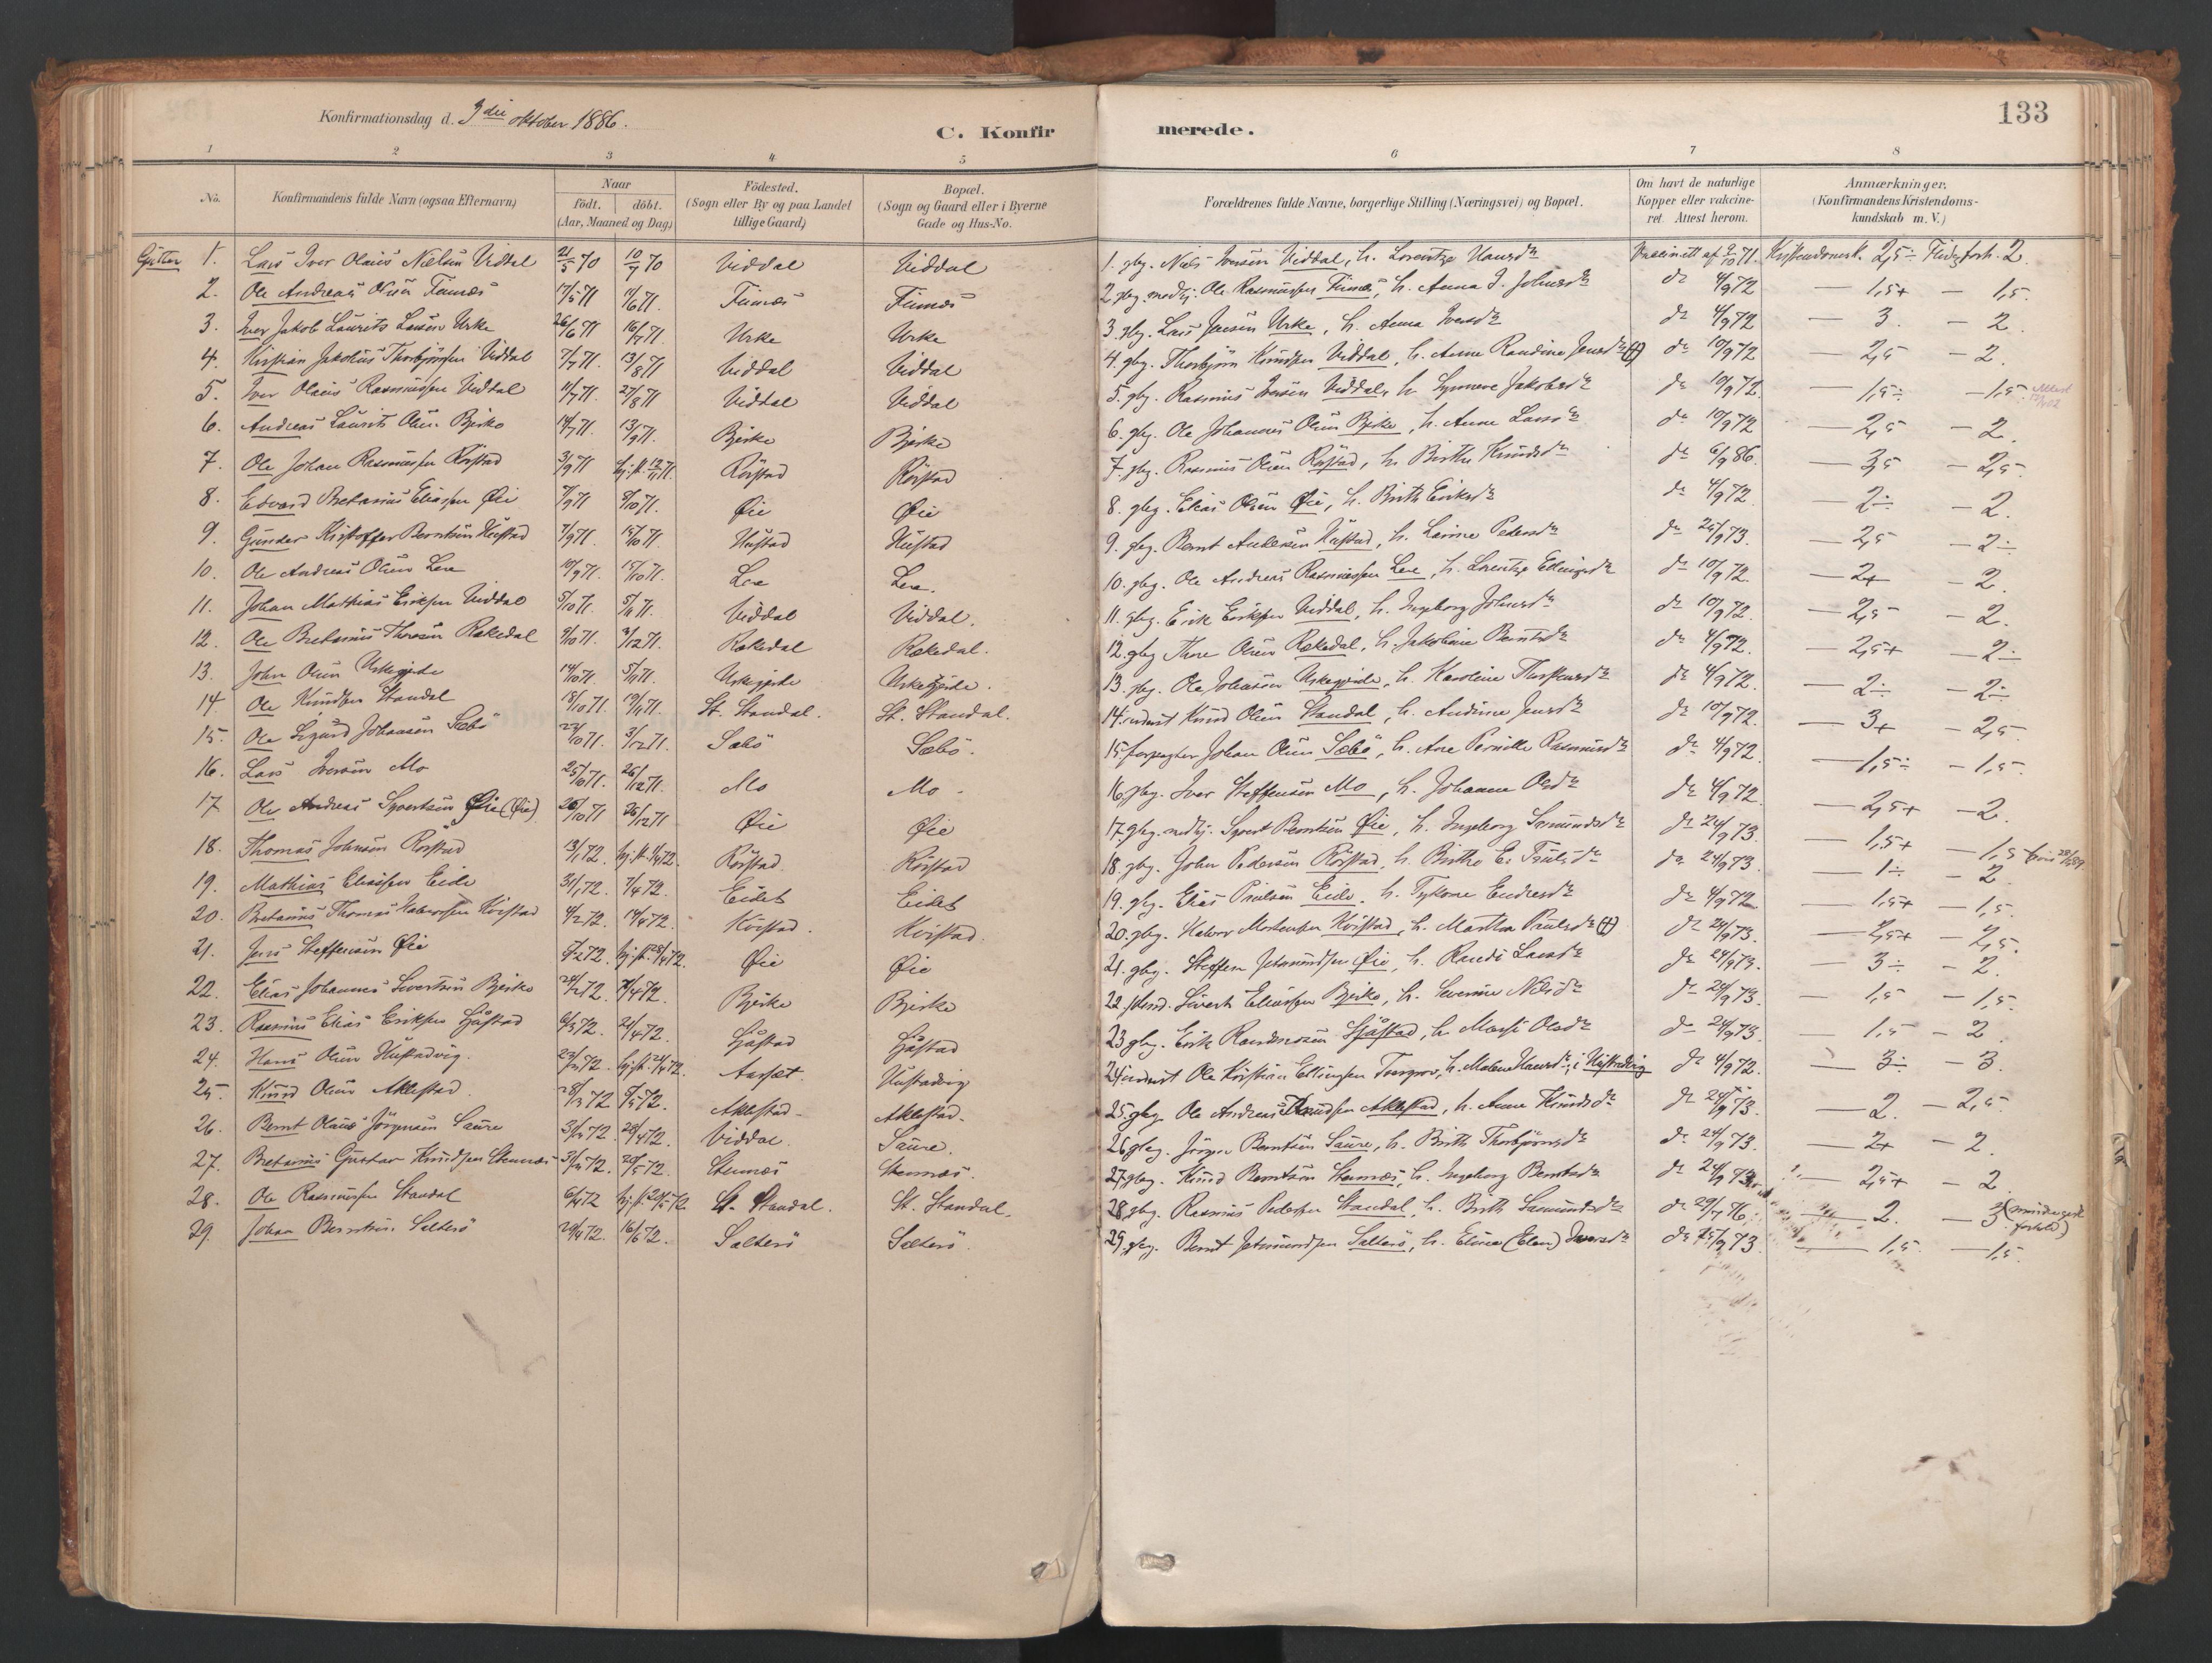 Konfirmationsdag d. 3die oktober 1886.
C. Konfirmerede.
133
1 2 3 4 5 6 7 8
No. Konfirmandens fulde Navn (ogsaa Efternavn) Naar födt. döbt. (Aar, Maaned og Dag) Födested. (Sogn eller By og paa Landet tillige Gaard) Bopæl. (Sogn og Gaard eller i Byerne Gade og Hus-No. Forældrenes fulde Navne, borgerlige Stilling (Næringsvei) og Bopæl. Om havt de naturlige Kopper eller vakcineret. Attest herom. Anmærkninger. (Konfirmandens Kristendomskundskab m. V.)
Gutter 1. Lars Iver Olaus Nielsen Viddal 21/5 70 10/7 70 Viddal Viddal 1. gbg. Niels Iversen Viddal, h. Lorentze Hansdr Vaccinett af 9/10 71. Kristendomsk. 2,5÷ Flid forh. 2.
2. Ole Andreas Olsen Finnæs 17/5 71 11/6 71. Finnæs Finnæs 2. gbg. Ole Rasmussen Finnæs, h. Anna J. Johnsdr do 4/9 72 — 1,5+ — 1,5.
3. Iver Jakob Laurits Larsen Urke 26/6 71 16/7 71. Urke Urke 3. gbg. Lars Jensen Urke, h. Anna Iversdr do 4/9 72 — 3. — 2.
4. Kristian Jakobus Thorbjørnsen Viddal 7/7 71. 13/8 71 Viddal Viddal 4. gbg. Thorbjørn Knudsen Viddal, h. Anne Randine Jensdr (†) do 10/9 72 — 2,5 — 2.
5. Iver Olaus Rasmussen Viddal 11/7 71. 27/8 71 Viddal Viddal 5. gbg. Rasmus Iversen Viddal, h. Synneve Jakobsdr do 10/9 72. — 1,5÷ — 1,5.
6. Andreas Laurits Olsen Bjerke 14/7 71. 13/9 71. Bjerke Bjerke 6. gbg. Ole Johannes Olsen Bjerke, h. Anne Larsdr do 10/9 72 — 2,5 — 2.
7. Ole Johan Rasmussen Rörstad 3/9 71 hj. st. 12/11 71. Rörstad Rörstad 7. gbg. Rasmus Olsen Rörstad, h. Birthe Knudsdr do 6/9 86. — 3,5 — 2,5.
8. Edvard Bretanus Eliassen Øie 7/9 71 8/10 71. Øie Øie 8. gbg. Elias Olsen Øie, h. Birth Eriksdr do 4/9 72. — 2÷ — 2.
9. Gunder Kristoffer Berntsen Hustad 7/9 71. 15/10 71. Hustad Hustad 9. gbg. Bernt Andersen Hustad, h. Larine Pedersdr do 25/9 73. — 2,5 — 2÷
10. Ole Andreas Olsen Lere 10/9 71. 15/10 71. Lere Lere. 10. gbg. Ole Andreas Rasmussen Lere, h. Lorentze Ellingsdr do 10/9 72. — 2+ — 2.
11. Johan Mathias Eriksen Viddal 5/10 71. 5/11 71. Viddal Viddal. 11. gbg. Erik Eriksen Viddal, h. Ingeborg Johnsdr do 10/9 72. — 2,5 — 2.
12. Ole Bretanus Thoresen Rækedal 9/10 71. 3/12 71. Rækedal Rækedal. 12. gbg Thore Olsen Rækedal, h. Jakobine Berntsdr do 4/9 72. — 2,5+ — 2÷
13. John Olsen Urkegjerde 14/10 71. 5/11 71. Urkegjerde Urkegjerde. 13. gbg. Ole Johnsen Urkegjerde, h. Karoline Thorstensdr do 4/9 72. — 2÷ — 2÷
14 Ole Knudsen Standal 18/10 71. 19/11 71. St. Standal. St. Standal. 14. inderst Knud Olsen Standal, h. Andrine Jensdr do 10/9 72. — 3+ — 2,5.
15. Ole Sigurd Johansen Sæbö 22/10 71. 3/12 71. Sæbö Sæbö. 15. forpagter Johan Olsen Sæbö, h. Ane Pernille Rasmusdr do 4/9 72. — 1,5÷ — 1,5.
16. Lars Iversen Mo 25/10 71. 26/12 71. Mo Mo. 16. gbg. Iver Steffensen Mo, h. Johanne Olsdr do 4/9 72. — 2,5+ — 2.
17 Ole Andreas Syvertsen Øie (Øie) 26/10 71 26/12 71 Øie Øie 17. gbg. Syvert Berntsen Øie, h. Ingeborg Samundsdr do 24/9 73. — 1,5+ — 1,5
18. Thomas Johnsen Rörstad 13/1 72. hj. st. 1/4 72. Rörstad. Rörstad 18. gbg. John Pedersen Rörstad, h. Birthe E. do 24/9 73. — 1÷ — 2.
19. Mathias Eliassen Eide 31/1 72. 7/4 72. Eidet Eidet 19. gbg. Elias Poulsen Eide. h. Endresdr do 4/9 72. — 1,5+ — 1,5.
20. Bretanus Thomas Halvorsen Kvistad 4/2 72. 14/4 72. Kvistad. Kvistad. 20. gbg. Halvor Mortensen Kvistad, h. Martha Paulsdr (†) do 24/9 73. — 2,5+ — 2,5.
21. Jens Steffensen Øie 9/2 72. hj. st. 28/4 72. Øie Øie 21. gbg. Steffen Jetmundsen Øie, h. Randi Larsdr do 24/9 73. — 3÷ — 2.
22. Elias Johannes Sivertsen Bjerke 24/2 72. 4/72. Bjerke Bjerke 22. Sivert Eliassen Bjerke, h. Severine Nilsdr do 24/9 73. — 1,5 — 1,5.
23. Rasmus Elias Eriksen Gjåstad 6/3 72. 21/4 72. Gjåstad Gjåstad 23 gbg. Erik Rasmussen Gjåstad, h. Marte Olsdr do 24/9 73. — 1,5 — 2.
24. Hans Olsen Hustadvig. 23/3 72. hj. st. 21/4 72. Aarset. Hustadvig 24. inderst Ole Kristian Ellingsen, h. Malene Hansdr, i Hustadvig do 4/9 72. — 3÷ — 3.
25. Knud Olsen Aklestad. 28/3 72 5/5 72. Aklestad. Aklestad. 25. gbg. Ole Andreas Knudsen Aklestad, h. Anne Knudsdr do 24/9 73. — 2. — 2,5.
26. Bernt Olaus Jörgensen Saure 31/3 72. 28/4 72. Viddal. Saure. 26. gbg. Jörgen Berntsen Saure, h. Birth Thorbjörnsdr do 24/9 73. — 2+ — 2.
27. Bretanus Gustav Knudsen Stennæs 31/3 72. 20/5 72. Stennæs Stennæs. 27. gbg. Knud Berntsen Stennæs, h. Ingeborg Berntsdr do 24/9 73. — 2,5+ — 2.
28. Ole Rasmussen Standal 6/4 72 hj. st. 20/5 72. St. Standal. St. Standal. 28. gbg. Rasmus Pedersen Standal, h. Birth Samundsdr do 29/7 76. — 2. — 3
29. Johan Berntsen Sæterö 29/4 72. 16/6 72. Sæterö Sæterö. 29. gbg. Bernt Jetmundsen Sæterö, h. Eline (Elen) Iversdr do 25/9 73. — 1,5. — 1,5.